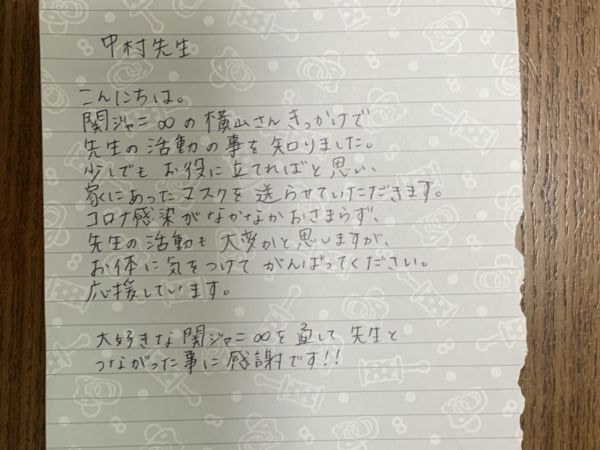 中村先生
こんにちは。
関ジャニ∞の横山さんきっかけで
先生の活動の事を知りました。
少しでもお役に立てればと思い、
家にあったマスクを送らせていただきます。
コロナ感染がなかなかおさまらず、
先生の活動も大変かと思しますが、
お体に気をつけてがんばってください。
応援しています。
大好きな関ジャニ∞を通して先生と
つながった事に感謝です!!